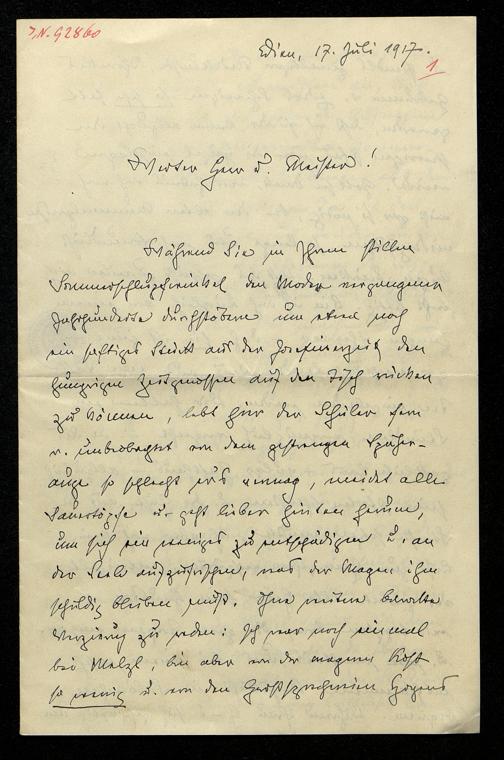 I.N. 92860
Wien, 17. Juli 1917.
1
Werter Herr u. Meister!
Während Sie in Ihrem stillen
Sommerschlupfwinkel den Moder vergangener
Jahrhunderte durchstöbern um etwa noch
ein saftiges Stück aus der Josefinerzeit den
hungrigen Zeitgenossen auf den Tisch rücken
zu können, lebt hier der Schüler fern
u. unbeobachtet von dem gestrengen Späher-
auge so schlecht er's vermag, meidet alle
Sauertöpfe u. geht lieber hinten herum,
um sich ein weniges zu entschädigen u. an
der Seele aufzufrischen, was der Magen ihm
schuldig bleiben muß. Ohne weitere
Verzierung zu reden: Ich war noch einmal
bei Melzl, bin aber von der mageren Kost
so wenig u. von den Großsprechereien